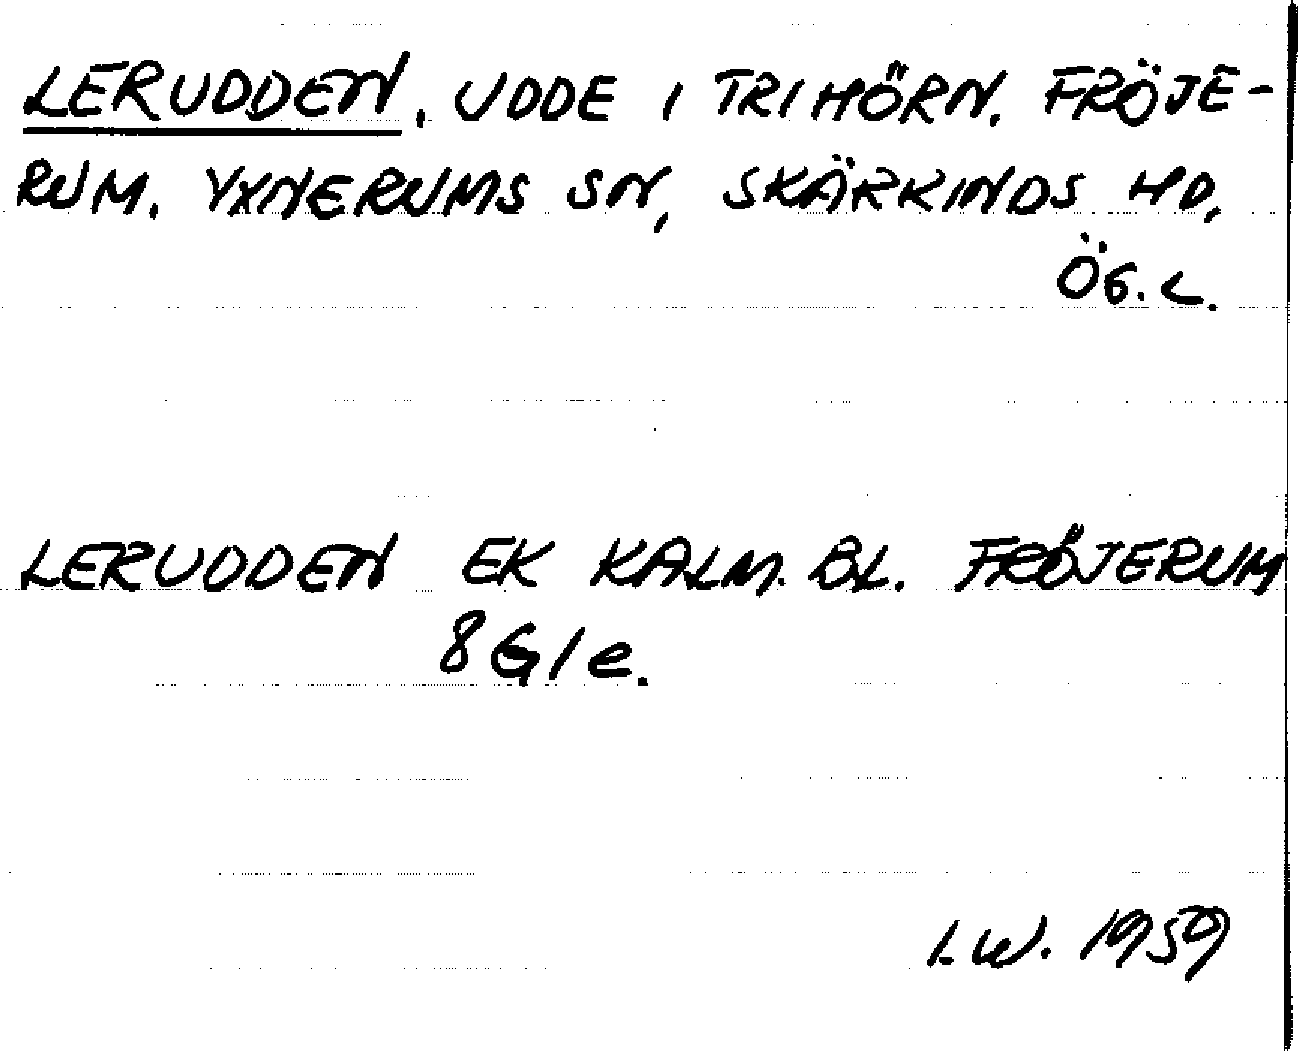 LERUDDEN. UDDE I TRIHÖRN. FRÖJE-
RUM. YXNERUMS SN, SKÄRKINDS HD,
ÖG. L.
LERUDDEN EK KALM. BL. FRÖJERUM
8G1e.
I.W. 1959